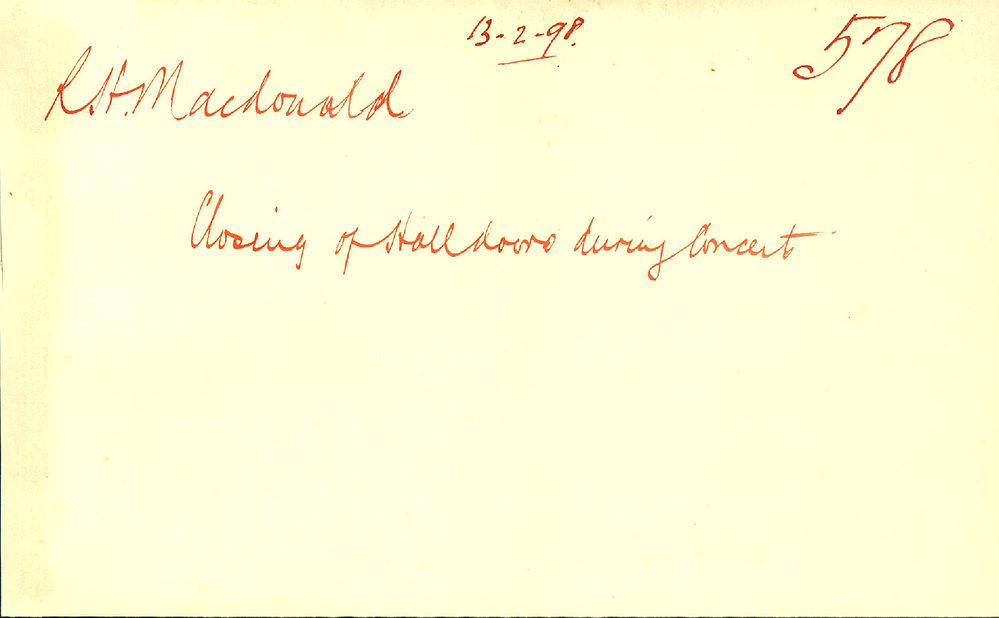 13-2-98.
578
R H. Macdonald
Closing of Hall doors during Concert